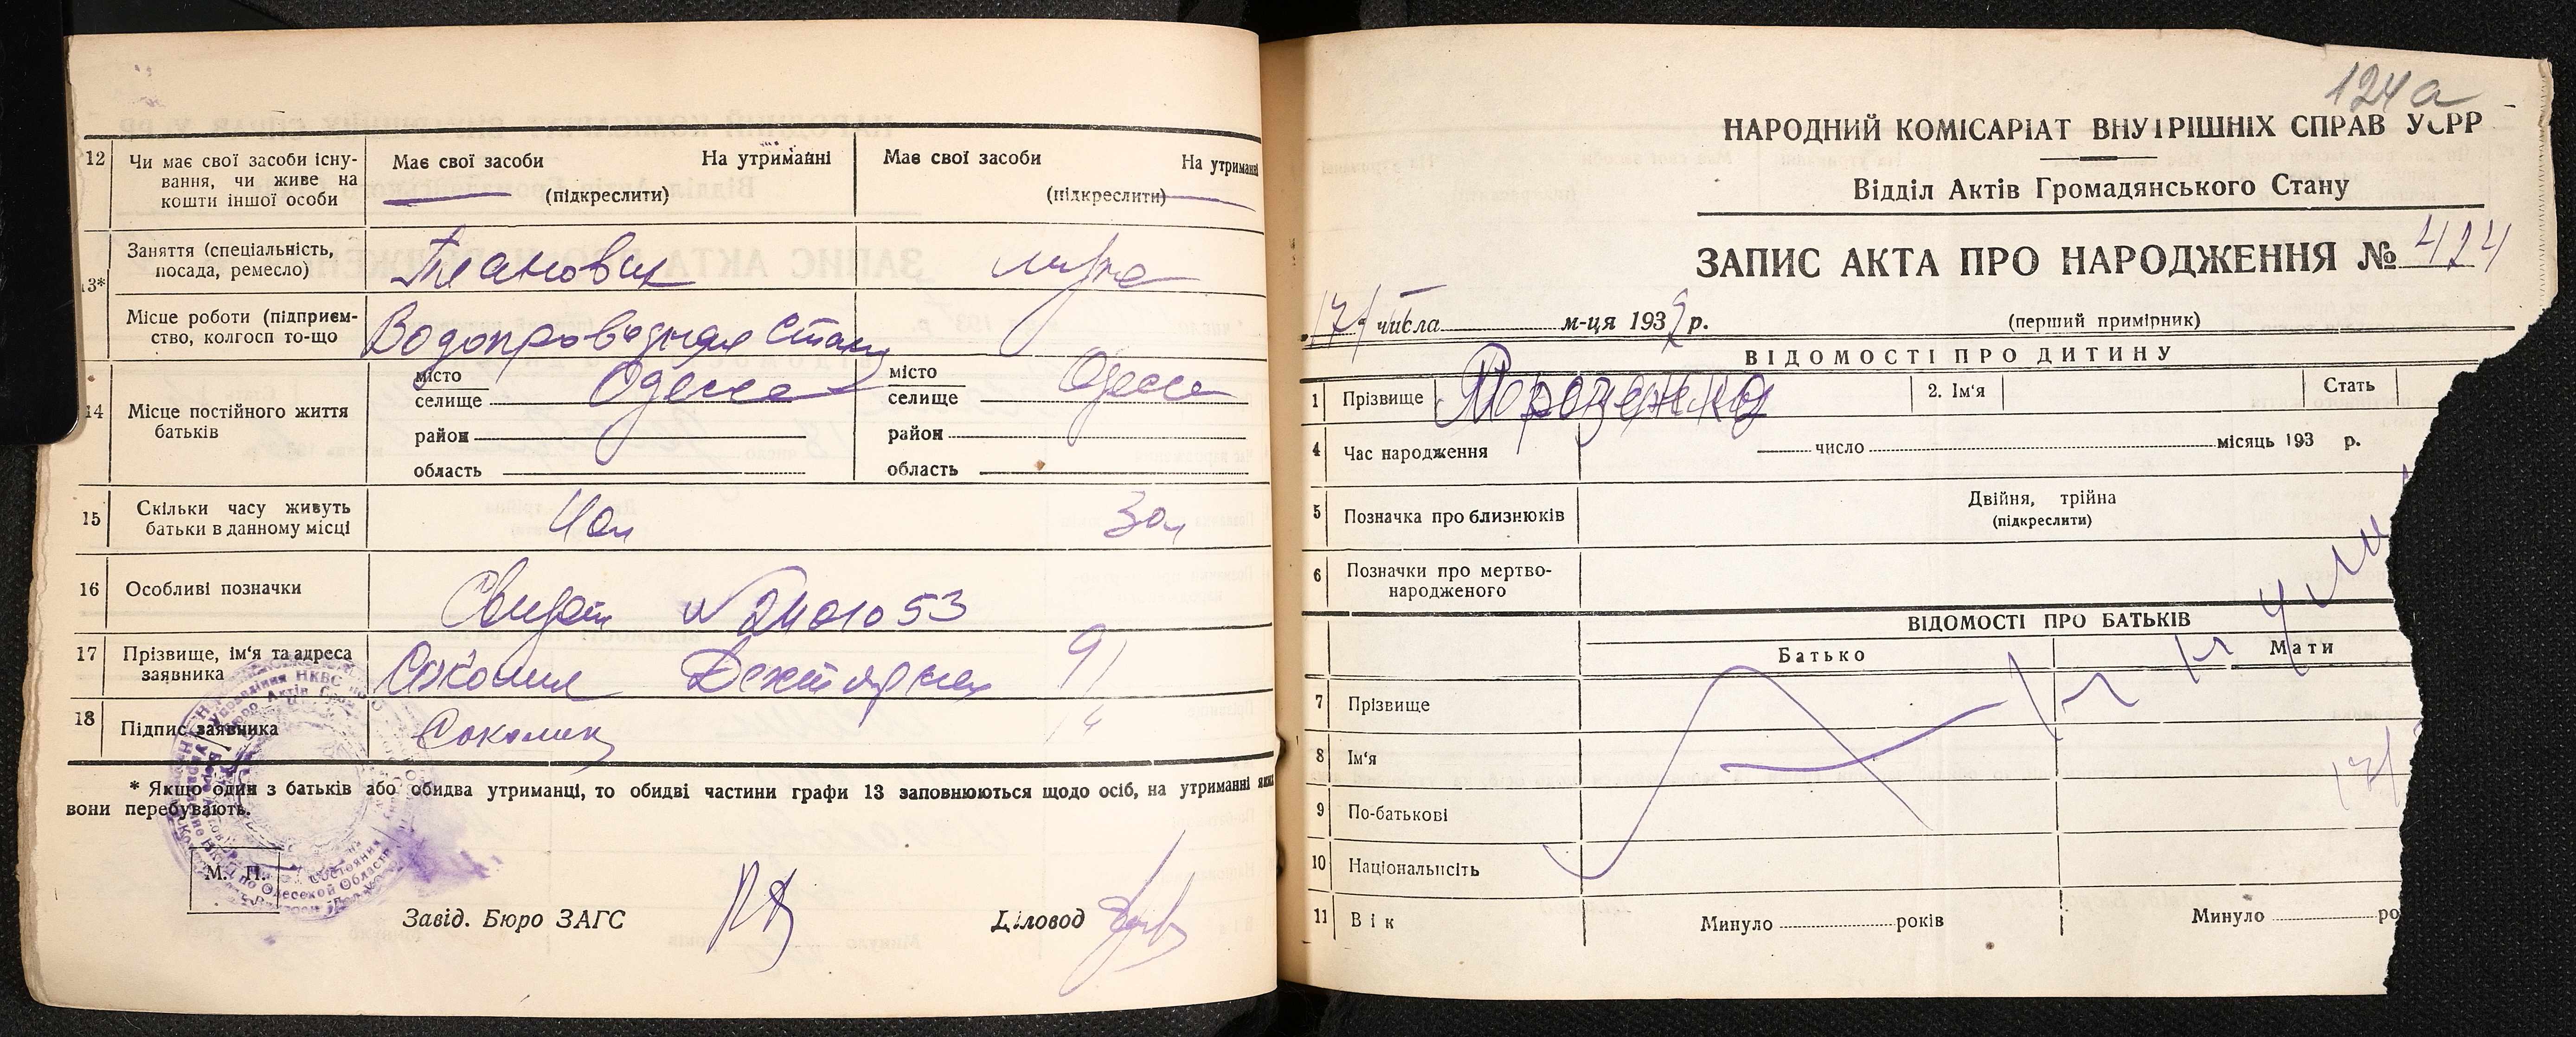 12 Чи має свої засоби існування, чи живе на кошти іншої особи
Має свої засоби На утриманні
(підкреслити)
Має свої засоби На утриманні
(підкреслити)
13* Заняття (спеціальність, посада, ремесло)
Плановик
Місце роботи (підприємство, колгосп то-що
Водопроводная Стан
14 Місце постійного життя батьків
місто
селище Одесса
район
область
місто
селище Одесса
район
область
15 Скільки часу живуть батьки в данному місці
16 Особливі позначки
Свидет N 2401053
17 Прізвище, ім'я та адреса заявника
18 Підпис заявника
* Якщо один з батьків або обидва утриманці, то обидві частини графи 13 заповнюються щодо осіб, на утриманні яких
вони перебувають.
М. П.
Завід. Бюро ЗАГС
Діловод
124а
НАРОДНИЙ КОМІСАРІАТ ВНУТРІШНІХ СПРАВ УСРР
Відділ Актів Громадянського Стану
ЗАПИС АКТА ПРО НАРОДЖЕННЯ № 424
„17" числа м-ця 1939 р.
(перший примірник)
ВІДОМОСТІ ПРО ДИТИНУ
1 Прізвище
2. Ім'я
Стать
4 Час народження
число місяць 193 р.
5 Позначка про близнюків
Двійня, трійна
(підкреслити)
6 Позначки про мертвонародженого
ВІДОМОСТІ ПРО БАТЬКІВ
Батько
Мати
7 Прізвище
8 Ім'я
9 По-батькові
10 Національність
11 Вік
Минуло років
Минуло ро